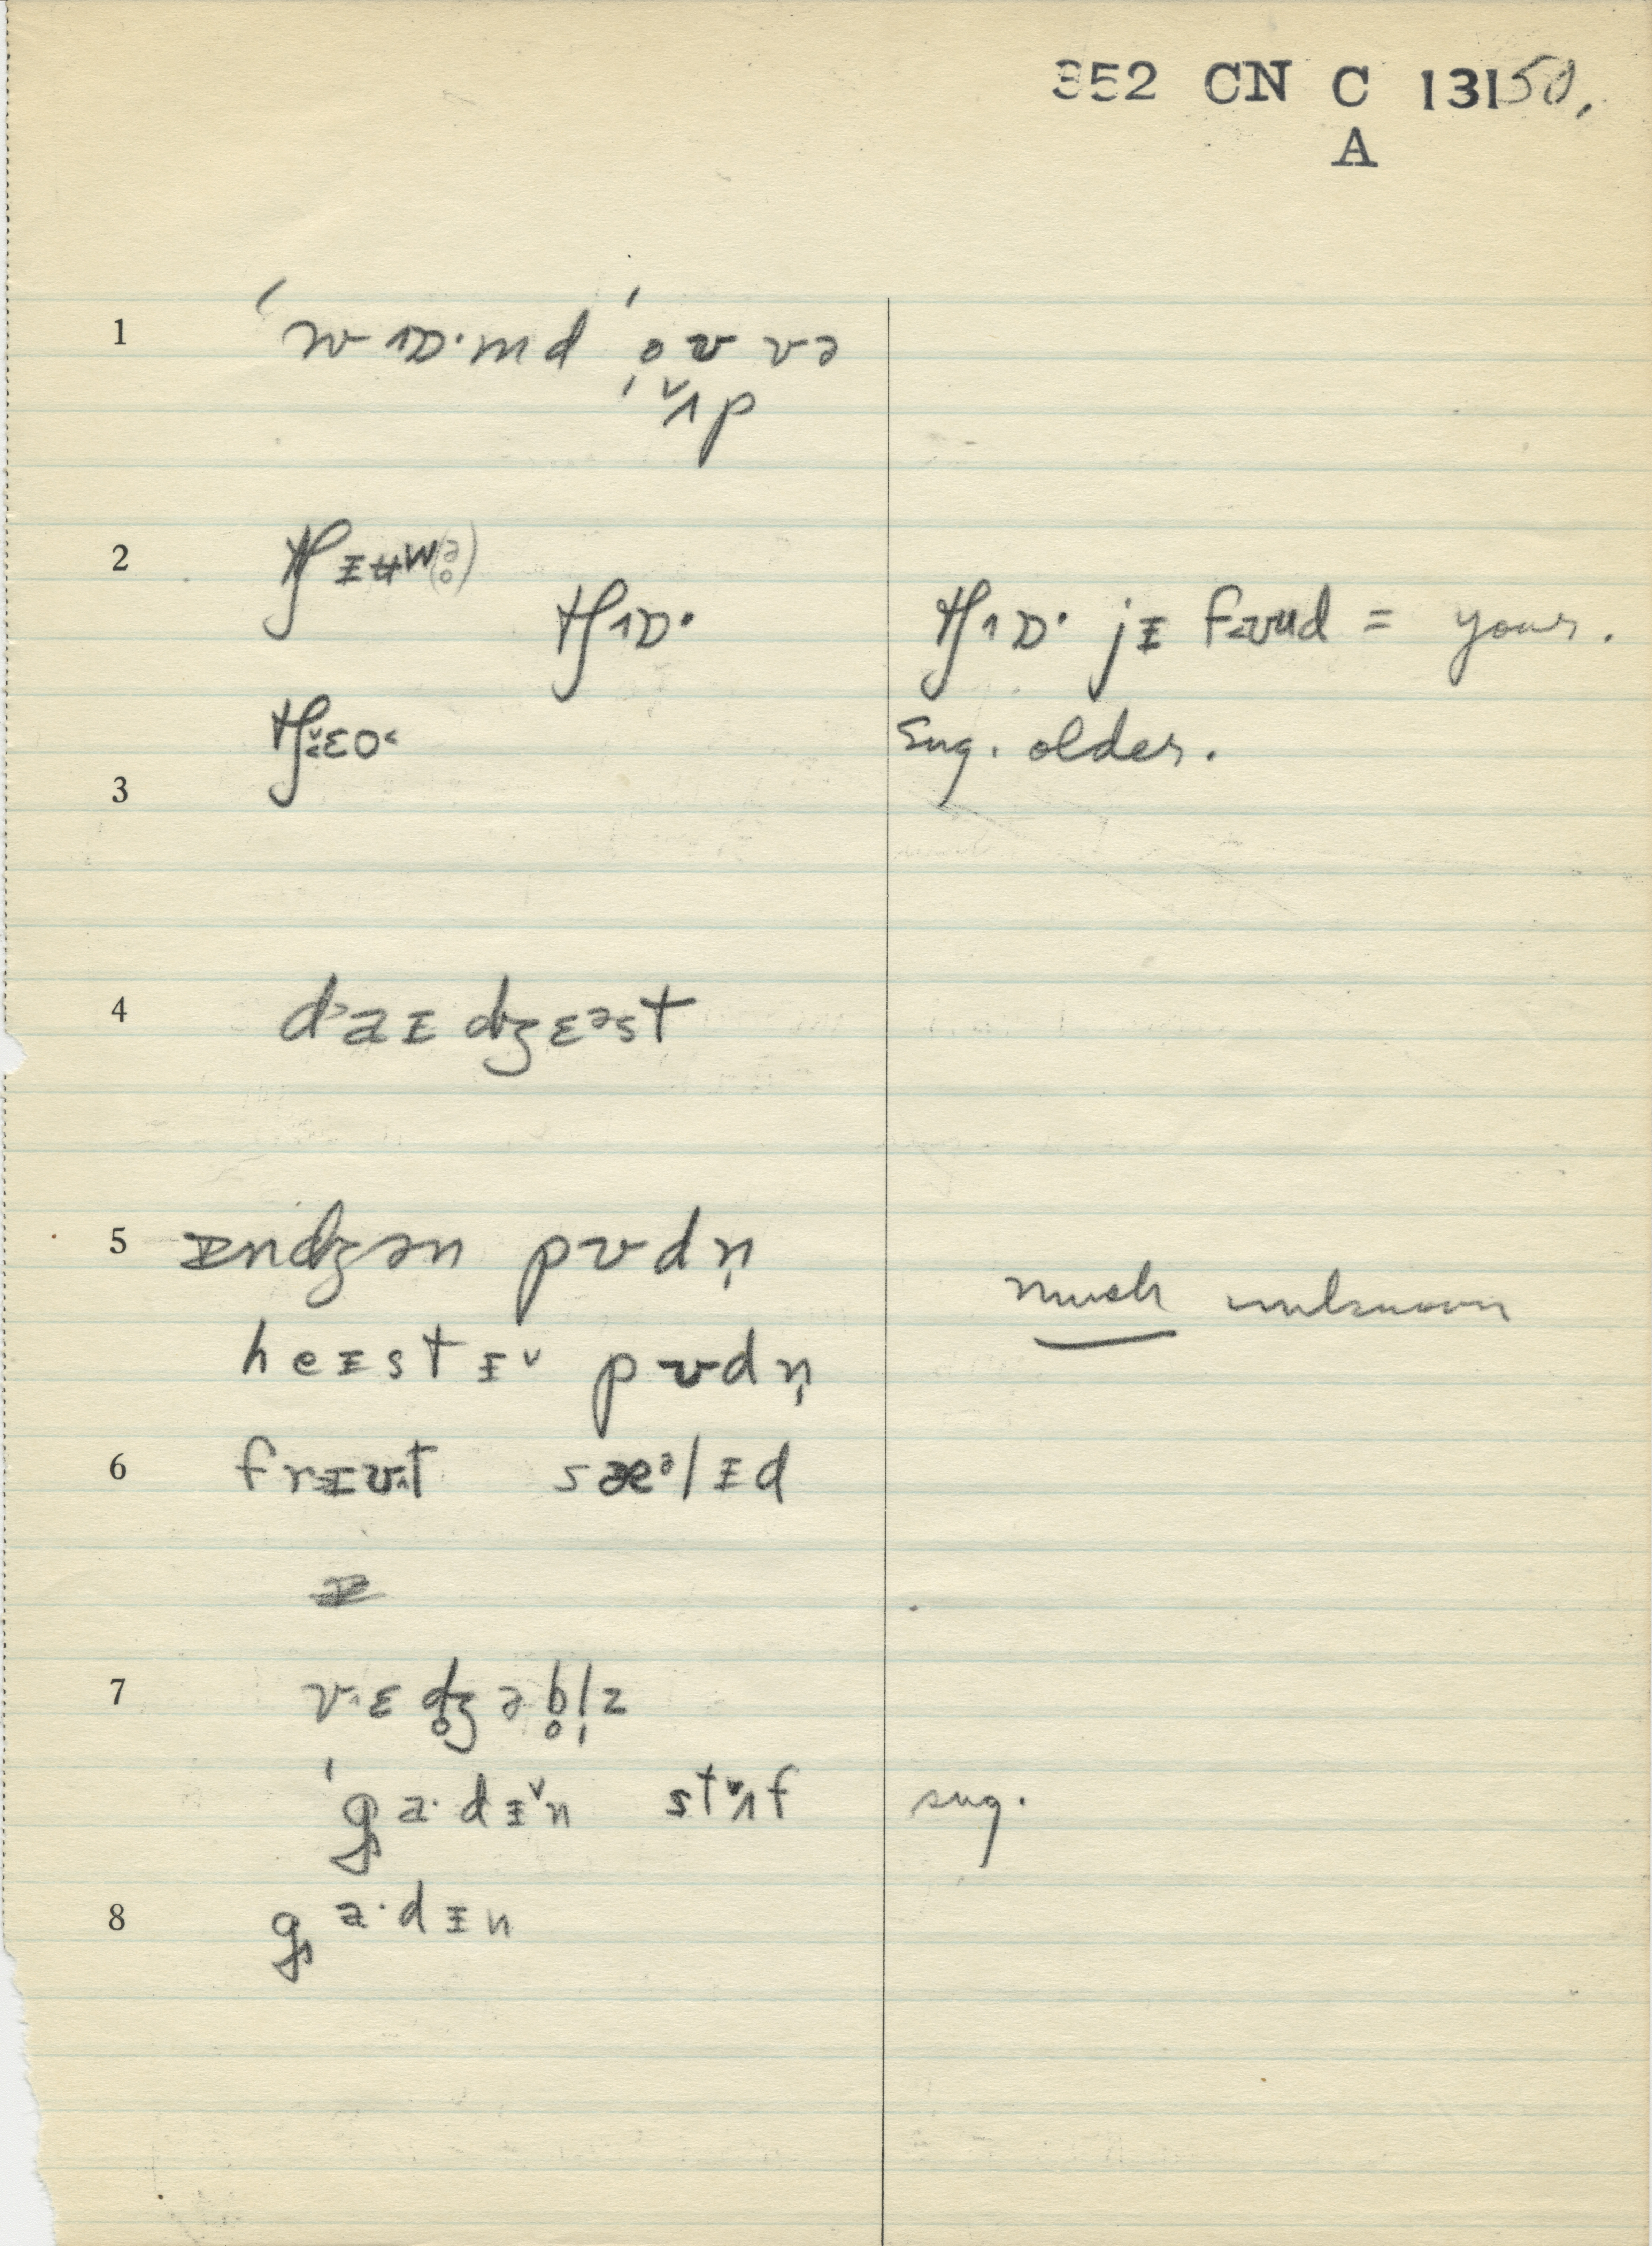 352 CN C 13150.
A
1 ˈwɒ·md ˈoʊvə
ˌʌp
2 tʃɪʉw(ə)
tʃɒ· tʃɒ· jɪ fʊud = your.
tʃɛo˂ sug. older.
3
4 daɪdʒɛᵊst
5 ɪndʒən pʊdn̩
much unknown
heɪstɪ˅ pʊdn̩
6 frɪʊt sæᵊlɪd
7 vɛdʒ̥əb̥l̩z
ˈga·dɪ˅n stʌf sug.
8 ga·dɪn